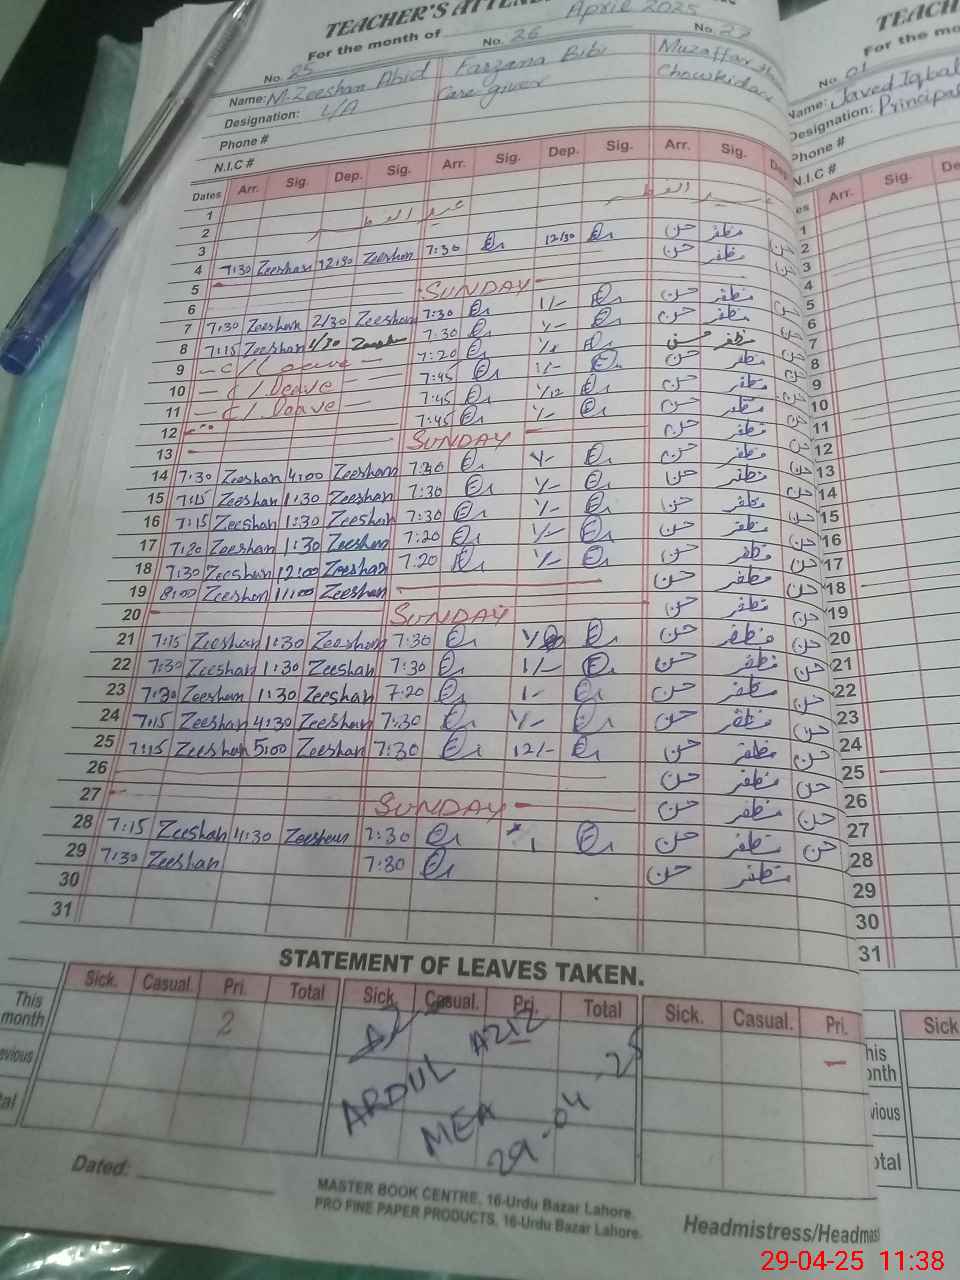 TEACHER'S ATTEN
For the month of April 2025
No. 25 No. 26 No. 27
Name: M. Zeeshan Abid Farzana Bibi Muzaffar
Designation: L/A Care giver Chowkidar
Phone #
N.I.C #
Dates Arr. Sig. Dep. Sig. Arr. Sig. Dep. Sig. Arr. Sig. Dep.
1
2 عید الفطر
3 7:30 12/30 حسن مظفر
4 7:30 Zeeshan 12:30 Zeeshan حسن مظفر
5
6 SUNDAY
7 7:30 Zeeshan 2/30 Zeeshan 7:30 1/- حسن مظفر
8 7:15 Zeeshan 4/30 7:30 حسن مظفر
9 - C/Leave - 7:20 حسن مظفر
10 - C/Leave - 7:45 حسن مظفر
11 - C/Leave - 7:45 حسن مظفر
12 7:45 حسن مظفر
13 SUNDAY حسن مظفر
14 7:30 Zeeshan 4:00 Zeeshan حسن مظفر
15 7:15 Zeeshan 1:30 Zeeshan 7:30 حسن مظفر
16 7:15 Zeeshan 1:30 Zeeshan 7:30 حسن مظفر
17 7:20 Zeeshan 1:30 Zeeshan 7:20 حسن مظفر
18 7:30 Zeeshan 12:00 Zeeshan 7:20 حسن مظفر
19 8:00 Zeeshan 11:00 Zeeshan حسن مظفر
20 SUNDAY حسن مظفر
21 7:15 Zeeshan 1:30 Zeeshan 7:30 حسن مظفر
22 7:30 Zeeshan 1:30 Zeeshan 7:30 1/- حسن مظفر
23 7:30 Zeeshan 1:30 Zeeshan 7:20 1- حسن مظفر
24 7:15 Zeeshan 4:30 Zeeshan 7:30 حسن مظفر
25 7:15 Zeeshan 5:00 Zeeshan 7:30 12/- حسن مظفر
26 حسن مظفر
27 SUNDAY حسن مظفر
28 7:15 Zeeshan 4:30 Zeeshan 7:30 1 حسن مظفر
29 7:30 Zeeshan 7:30 حسن مظفر
30
31
STATEMENT OF LEAVES TAKEN.
Sick. Casual. Pri. Total Sick. Casual. Pri. Total Sick. Casual. Pri.
This month 2 -
evious
tal
ABDUL AZIZ
MEA
29-04-25
Dated:
MASTER BOOK CENTRE, 16-Urdu Bazar Lahore.
PRO FINE PAPER PRODUCTS, 16-Urdu Bazar Lahore.
Headmistress/Headmas
TEACH
For the mo
No. 01
Name: Javed Iqbal
Designation: Principal
Phone #
N.I.C #
es Arr. Sig. De
1
2
3
4
5
6
7
8
9
10
11
12
13
14
15
16
17
18
19
20
21
22
23
24
25
26
27
28
29
30
31
Sick
his
onth
vious
otal
29-04-25 11:38